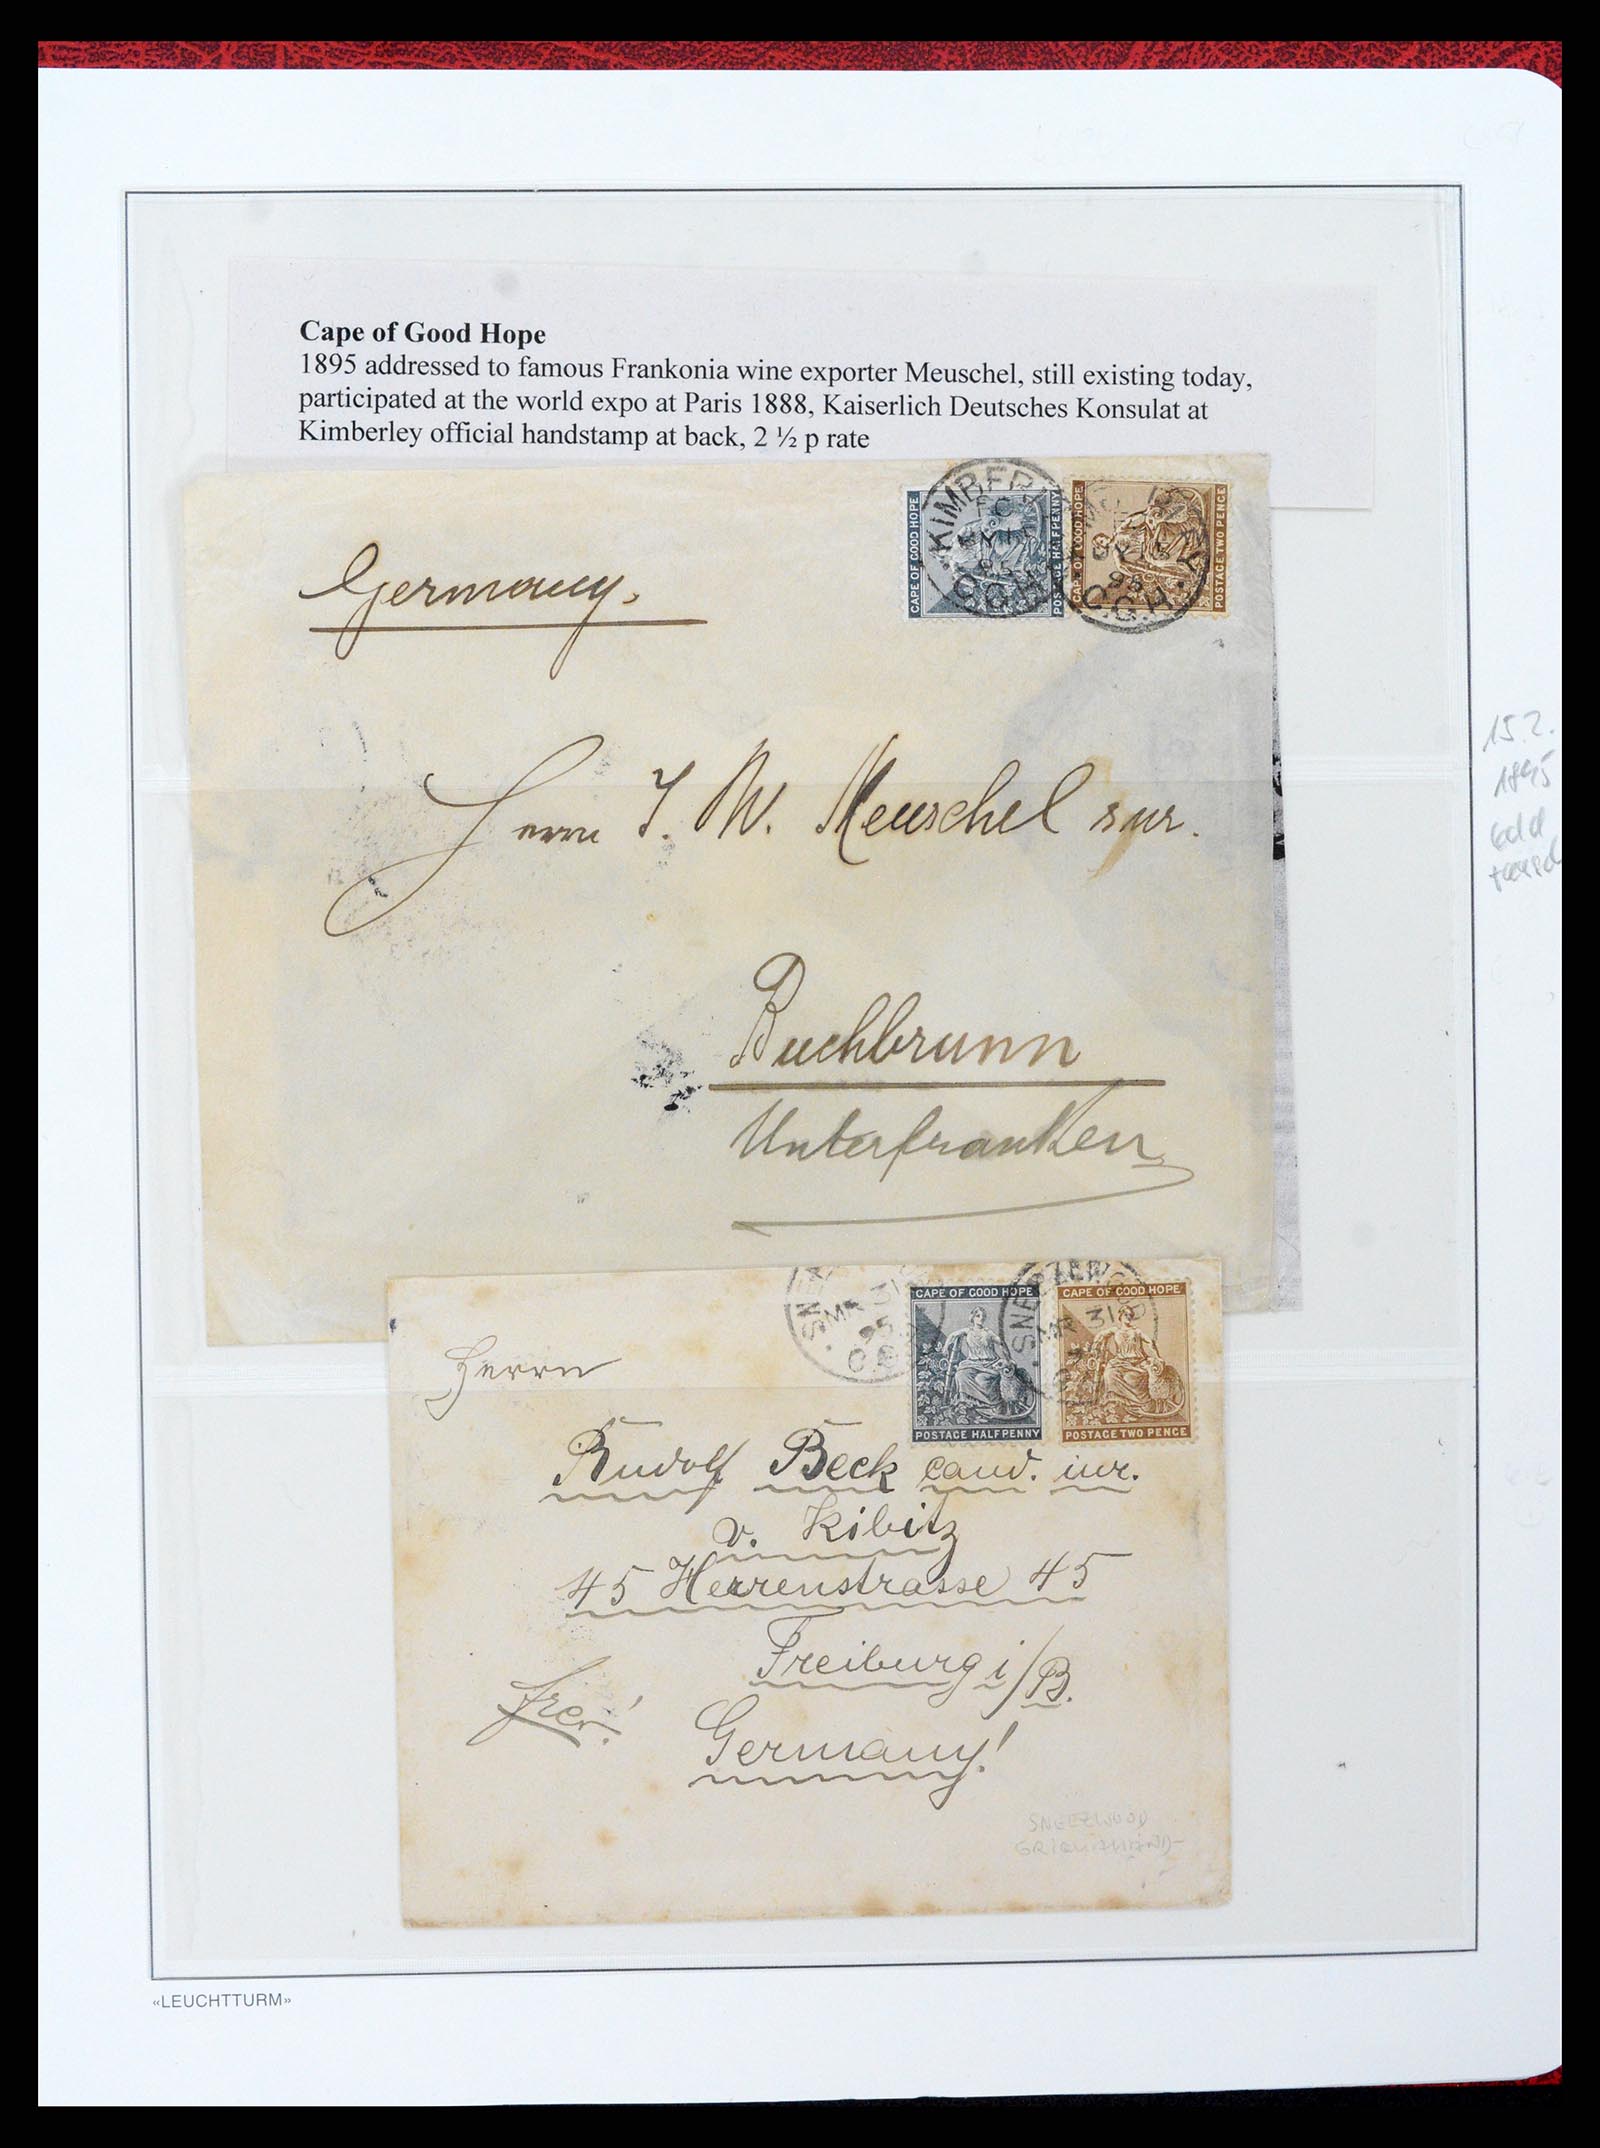 Cape of Good Hope
1895 addressed to famous Frankonia wine exporter Meuschel, still existing today,
participated at the world expo at Paris 1888, Kaiserlich Deutsches Konsulat at
Kimberley official handstamp at back, 2 ½ p rate
KIMBER
95
C.G.H.
CAPE OF GOOD HOPE
POSTAGE HALFPENNY
CAPE OF GOOD HOPE
POSTAGE TWO PENCE
95
.G.H.
Germany.
Herrn J. W. Meuschel sur.
Buchbrunn
Unterfranken
15.2.
1895
SNE
MR 31
95
SNEEZEWOOD
MR 31
CAPE OF GOOD HOPE
POSTAGE HALFPENNY
CAPE OF GOOD HOPE
POSTAGE TWO PENCE
Herrn
Rudolf Beck cand. iur.
v. Kibitz
45 Herrenstrasse 45
Freiburg i/B.
Germany!
SNEEZWOOD
«LEUCHTTURM»